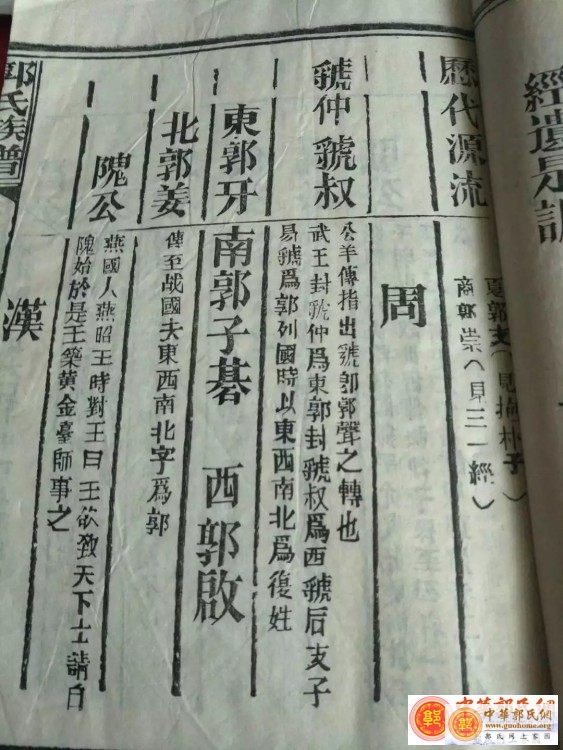 經遺是
歷代源流
夏郭支（見抱朴子）
商郭崇（見三一經）
周
虢仲 虢叔
公羊傳指出虢卽郭聲之轉也
武王封虢仲爲東郭封虢叔爲西虢后支子
易虢爲郭列國時以東西南北爲復姓
東郭牙 南郭子綦 西郭啟
北郭姜
傳至战國夫東西南北字爲郭
隗公
燕國人燕昭王時對王曰王欲致天下士請自
隗始於是王築黃金臺師事之
漢
郭氏族譜
中華郭氏網
www.guohome.org
郭氏網上家園